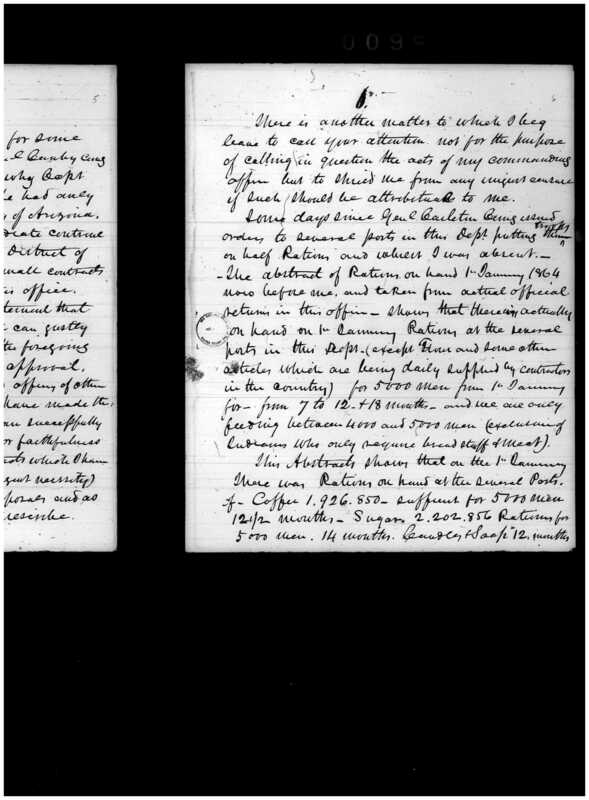 0095
5
for some
Canby Comg
why Capt
he had only
of Arizona.
continue
District of
small contracts
office.
that
can justly
the foregoing
approval.
officers of other
have made the
successfully
or faithfulness
which I have
necessity)
and as
prescribe.
6.
There is another matter to which I beg
leave to call your attention. not for the purpose
of calling in question the acts of my commanding
officer but to shield me from any unjust censure
if such should be attributable to me.
Some days since Genl Carleton Comg issued
orders to several posts in this Dept putting troops
on half Rations and whilst I was absent. —
The abstract of Rations on hand 1st January 1864
now before me. and taken from actual official
returns in this office — shows that there is actually
on hand on 1st January Rations at the several
posts in this Dept. (except Flour and some other
articles which are being daily supplied by contractors
in the country) for 5000 men from 1st January
for — from 7 to 12. & 18 months — and we are only
feeding between 4000 and 5000 men (exclusive of
Indians who only require bread stuff & Meat).
This Abstracts shows that on the 1st January
There was Rations on hand at the several Posts.
of — Coffee 1.926.850 — sufficient for 5000 men
12 1/2 months — Sugars 2.202.856 Rations for
5000 men. 14 months. Candles & Soap 12 months